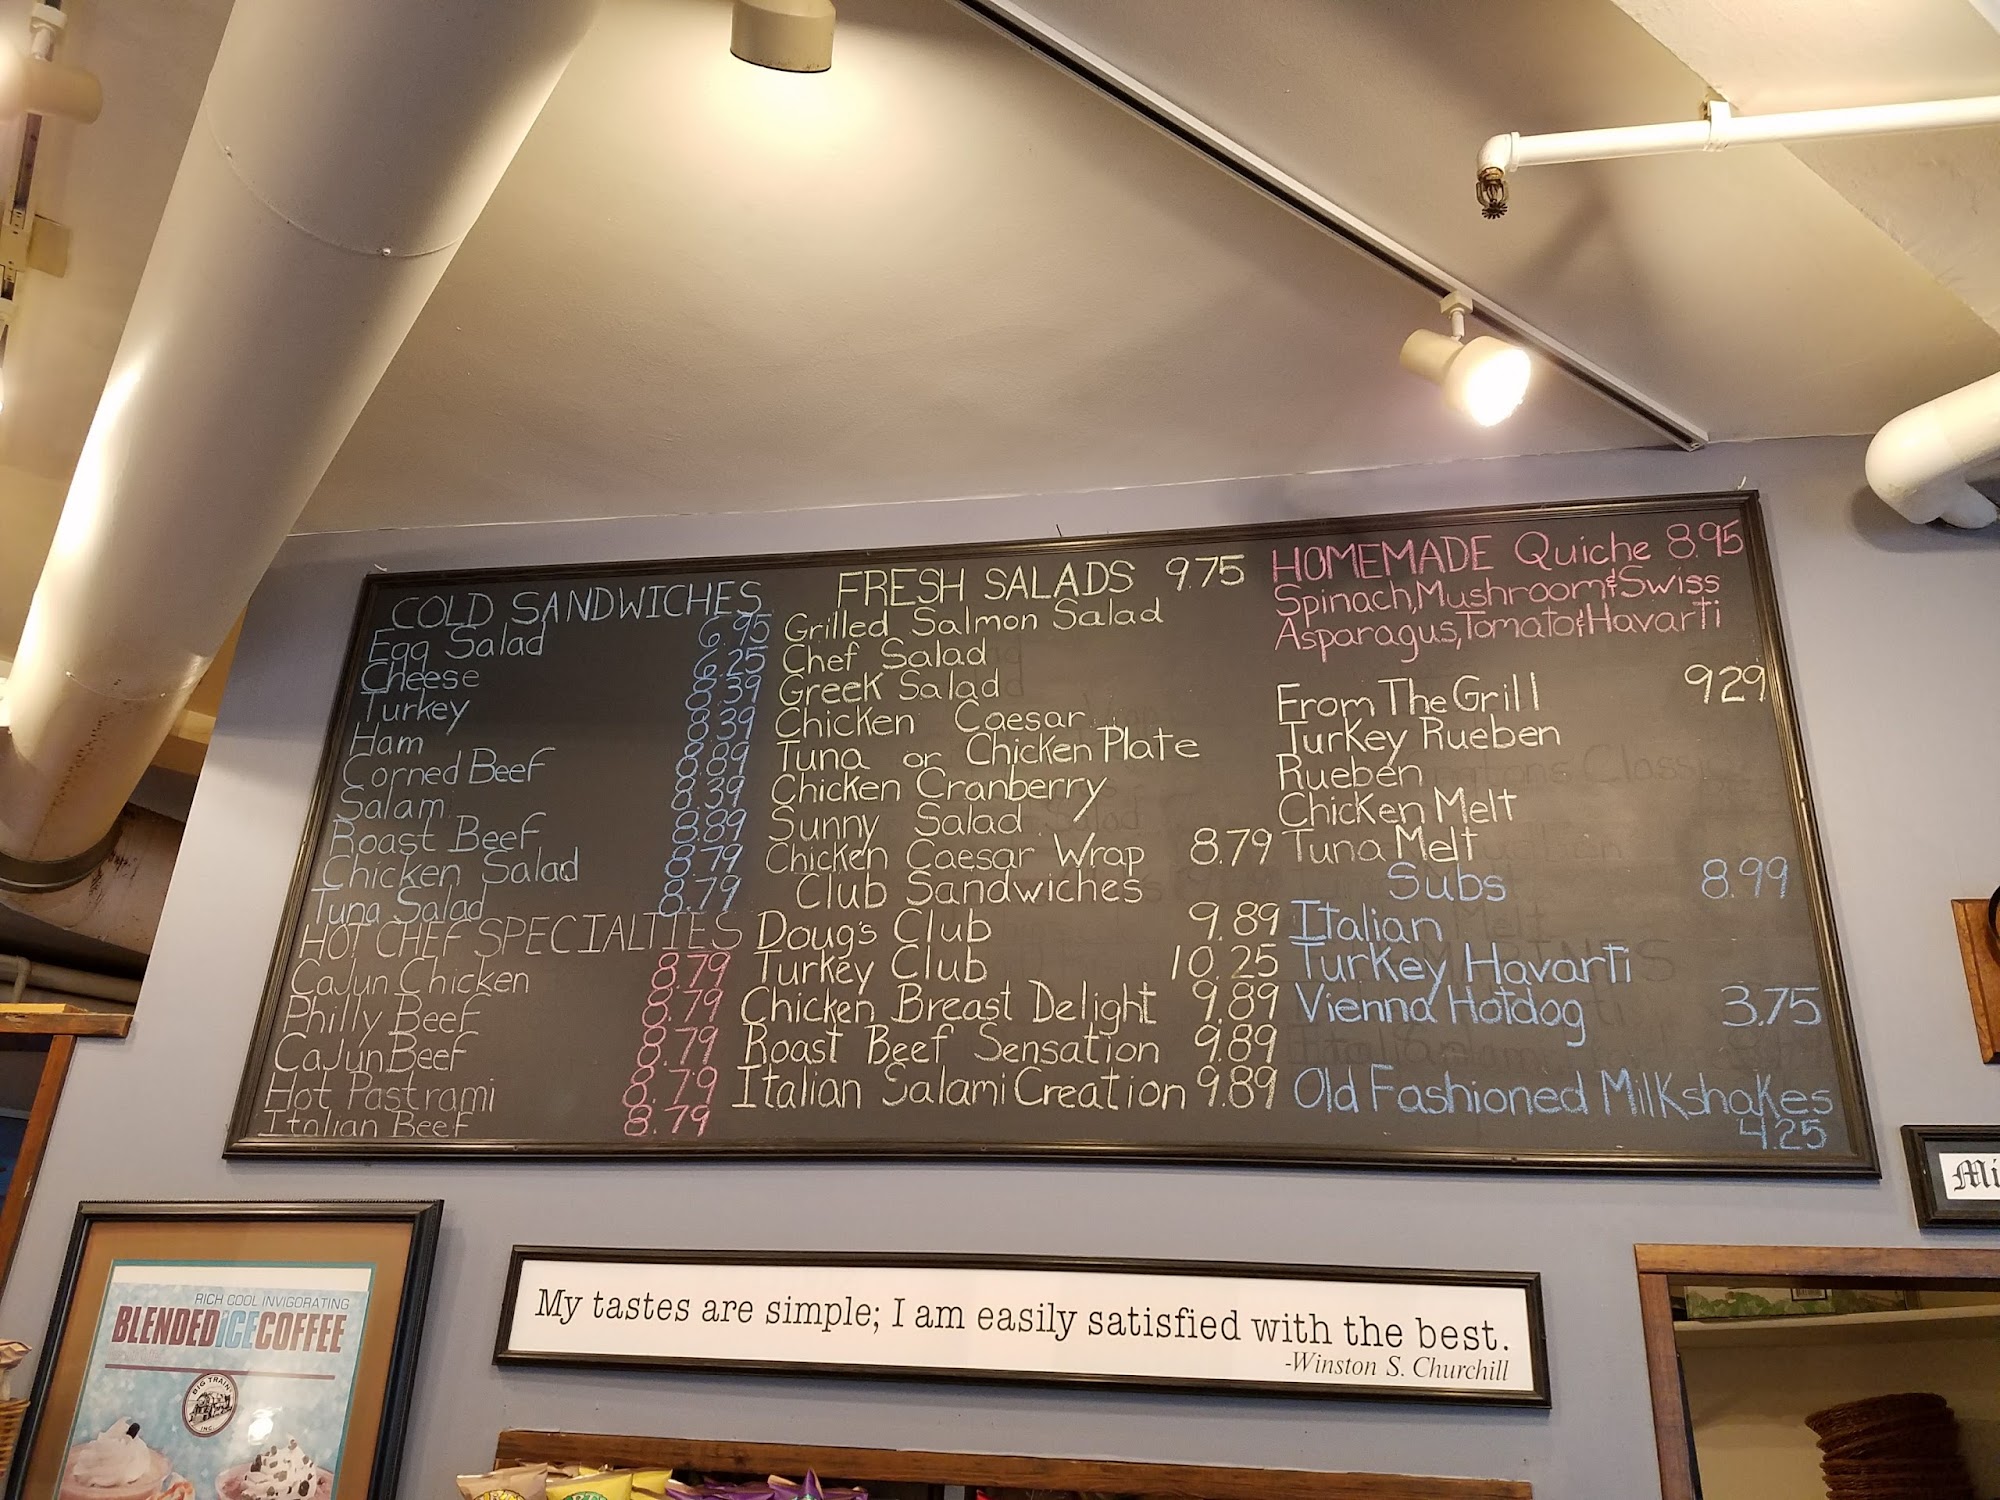 COLD SANDWICHES
Egg Salad 6.95
Cheese 6.25
Turkey 8.39
Ham 8.39
Corned Beef 8.89
Salam 8.39
Roast Beef 8.89
Chicken Salad 8.79
Tuna Salad 8.79
HOT CHEF SPECIALTIES
Cajun Chicken 8.79
Philly Beef 8.79
Cajun Beef 8.79
Hot Pastrami 8.79
Italian Beef 8.79
FRESH SALADS 9.75
Grilled Salmon Salad
Chef Salad
Greek Salad
Chicken Caesar
Tuna or Chicken Plate
Chicken Cranberry
Sunny Salad
Chicken Caesar Wrap 8.79
Club Sandwiches
Doug's Club 9.89
Turkey Club 10.25
Chicken Breast Delight 9.89
Roast Beef Sensation 9.89
Italian Salami Creation 9.89
HOMEMADE Quiche 8.95
Spinach, Mushroom & Swiss
Asparagus, Tomato & Havarti
From The Grill 9.29
Turkey Rueben
Rueben
Chicken Melt
Tuna Melt
Subs 8.99
Italian
Turkey Havarti
Vienna Hotdog 3.75
Old Fashioned Milkshakes
4.25
Mi
RICH COOL INVIGORATING
BLENDED iCE COFFEE
BIG TRAIN
INC.
My tastes are simple; I am easily satisfied with the best.
-Winston S. Churchill